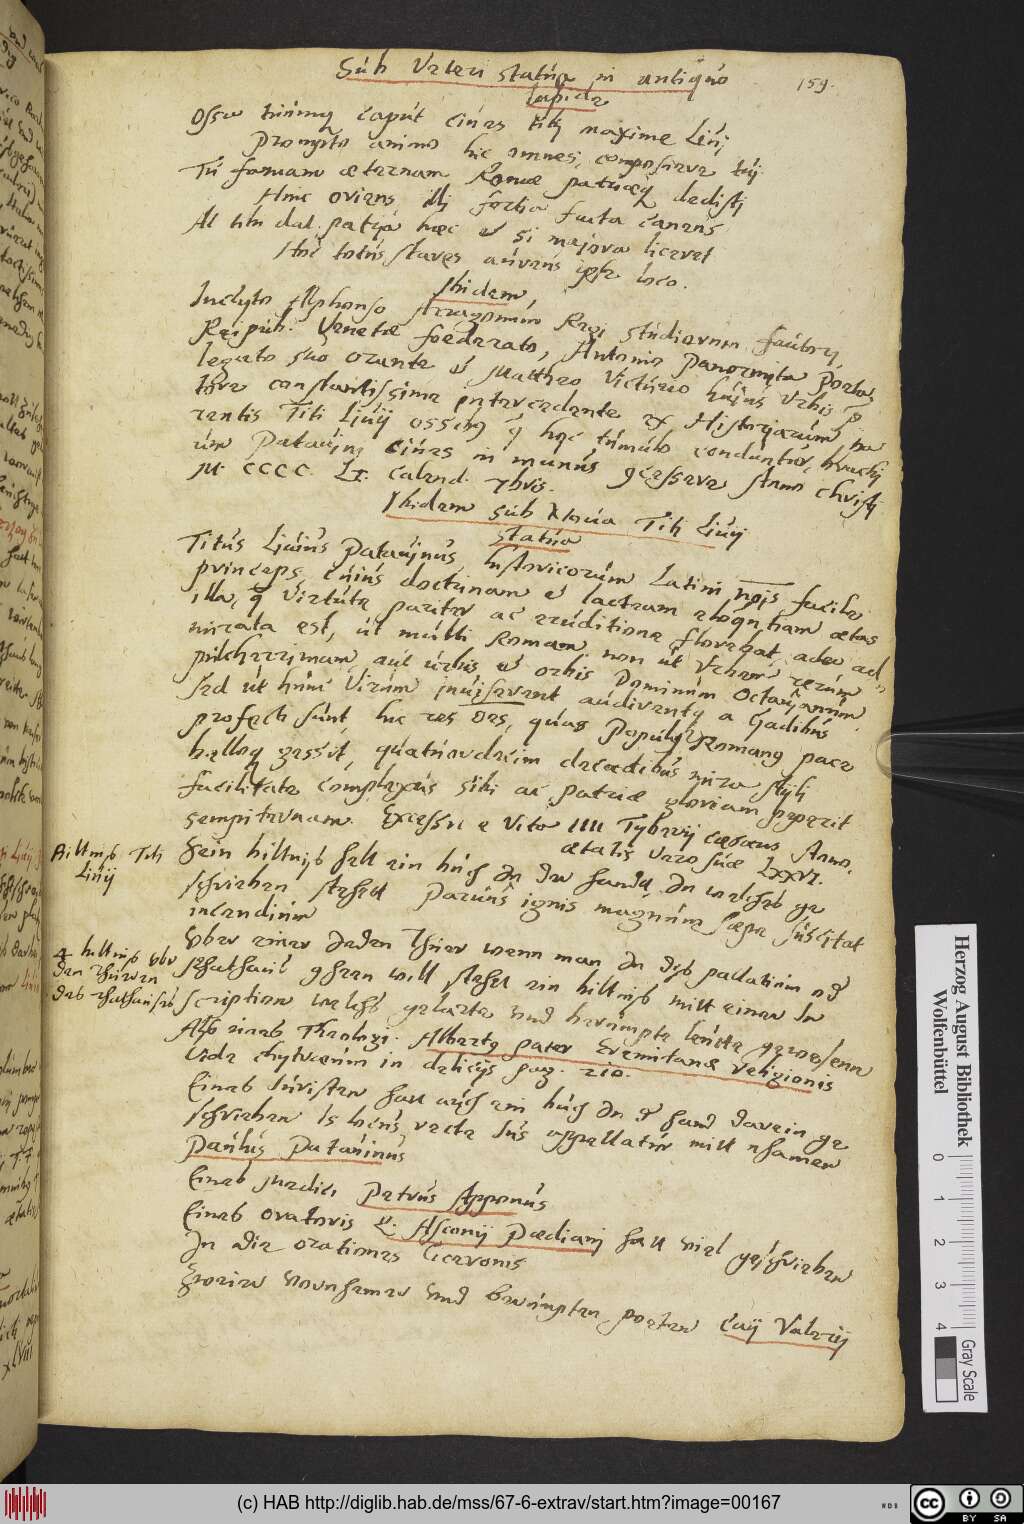 Sub Veteri statua in antiquo
lapide
159.
Ossa tuumq caput cives tibi maxime Livi,
Prompto animo hic omnes, composuere tui
Tu famam æternam Romæ patriæq dedisti
Huic oriens illi fortia facta canens
At tibi dat patria hæc et si majora liceret
Hoc totus stares aureus ipse loco.
Ibidem,
Inclyto Alphonso Arragonum Regi studiorum fautori,
Reipub. Venetæ foederato, Antonio Panormita Poeta
legato suo orante et Matthæo Victurio hujus Urbis p
tore constantissime intercedente ex Historiarum pa
rentis Titi Livij ossibus q hoc tumulo conduntur, brachij
um Patavini cives in munus gcessere Anno Christi
M. CCCC. LI. calend. 7bris.
Ibidem sub noua Titi Livij
statua
Titus Livius Patavinus, historicorum Latini nois facile
princeps, cuius doctrinam et lacteam eloqntiam ætas
illa, q virtute pariter ac eruditione florebat, adeo ad=
mirata est, ut multi Romam non ut Urbem rerum
pulcherrimam, aut urbis et orbis Dominum Octavianum
sed ut hunc Virum inviserent audirentq a Gadibus
profecti sunt, hic res oes, quas Populus Romanus pace
belloq gessit, quatuordecim decadibus mira styli
facilitate complexus sibi ac patriæ gloriam peperit
sempiternam. Excessit e vita IIII Tyberij cæsaris Anno,
ætatis vero suæ LXXVI.
Biltnis Titi
Livij
Sein biltnijs hatt ein buch In der handt, In welches ge
schrieben stehett Parvus ignis magnum sæpe suscitat
incendium
4 biltnis vbr
den Thüren
des rhathauses
Vber einer Jeden Thüer wenn man In diss pallatium odr
Rhathaus gehen will, stehet ein biltniss mitt einer In
scription welche gelarte vnd berümpte leutte gewesenn
Alss eines Theologi. Alberty pater Eremitanæ religionis
Vide Chytræum in delicijs pag. 210.
Eines Juristen hatt auch ein buch In dr hand darein ge
schrieben Is bens recte Jus appellatur mitt nhamen
Paulus Patavinus
Eines Medici Petrus Apponus
Eines oratoris Q. Asconij Pædiani hatt viel geschrieben
In die orationes Ciceronis
Zweier vornhemer vnd berümpten poeten Caij Valerij
Herzog August Bibliothek
Wolfenbüttel
0 1 2 3 4
Gray Scale
(c) HAB http://diglib.hab.de/mss/67-6-extrav/start.htm?image=00167
WDB
cc BY SA